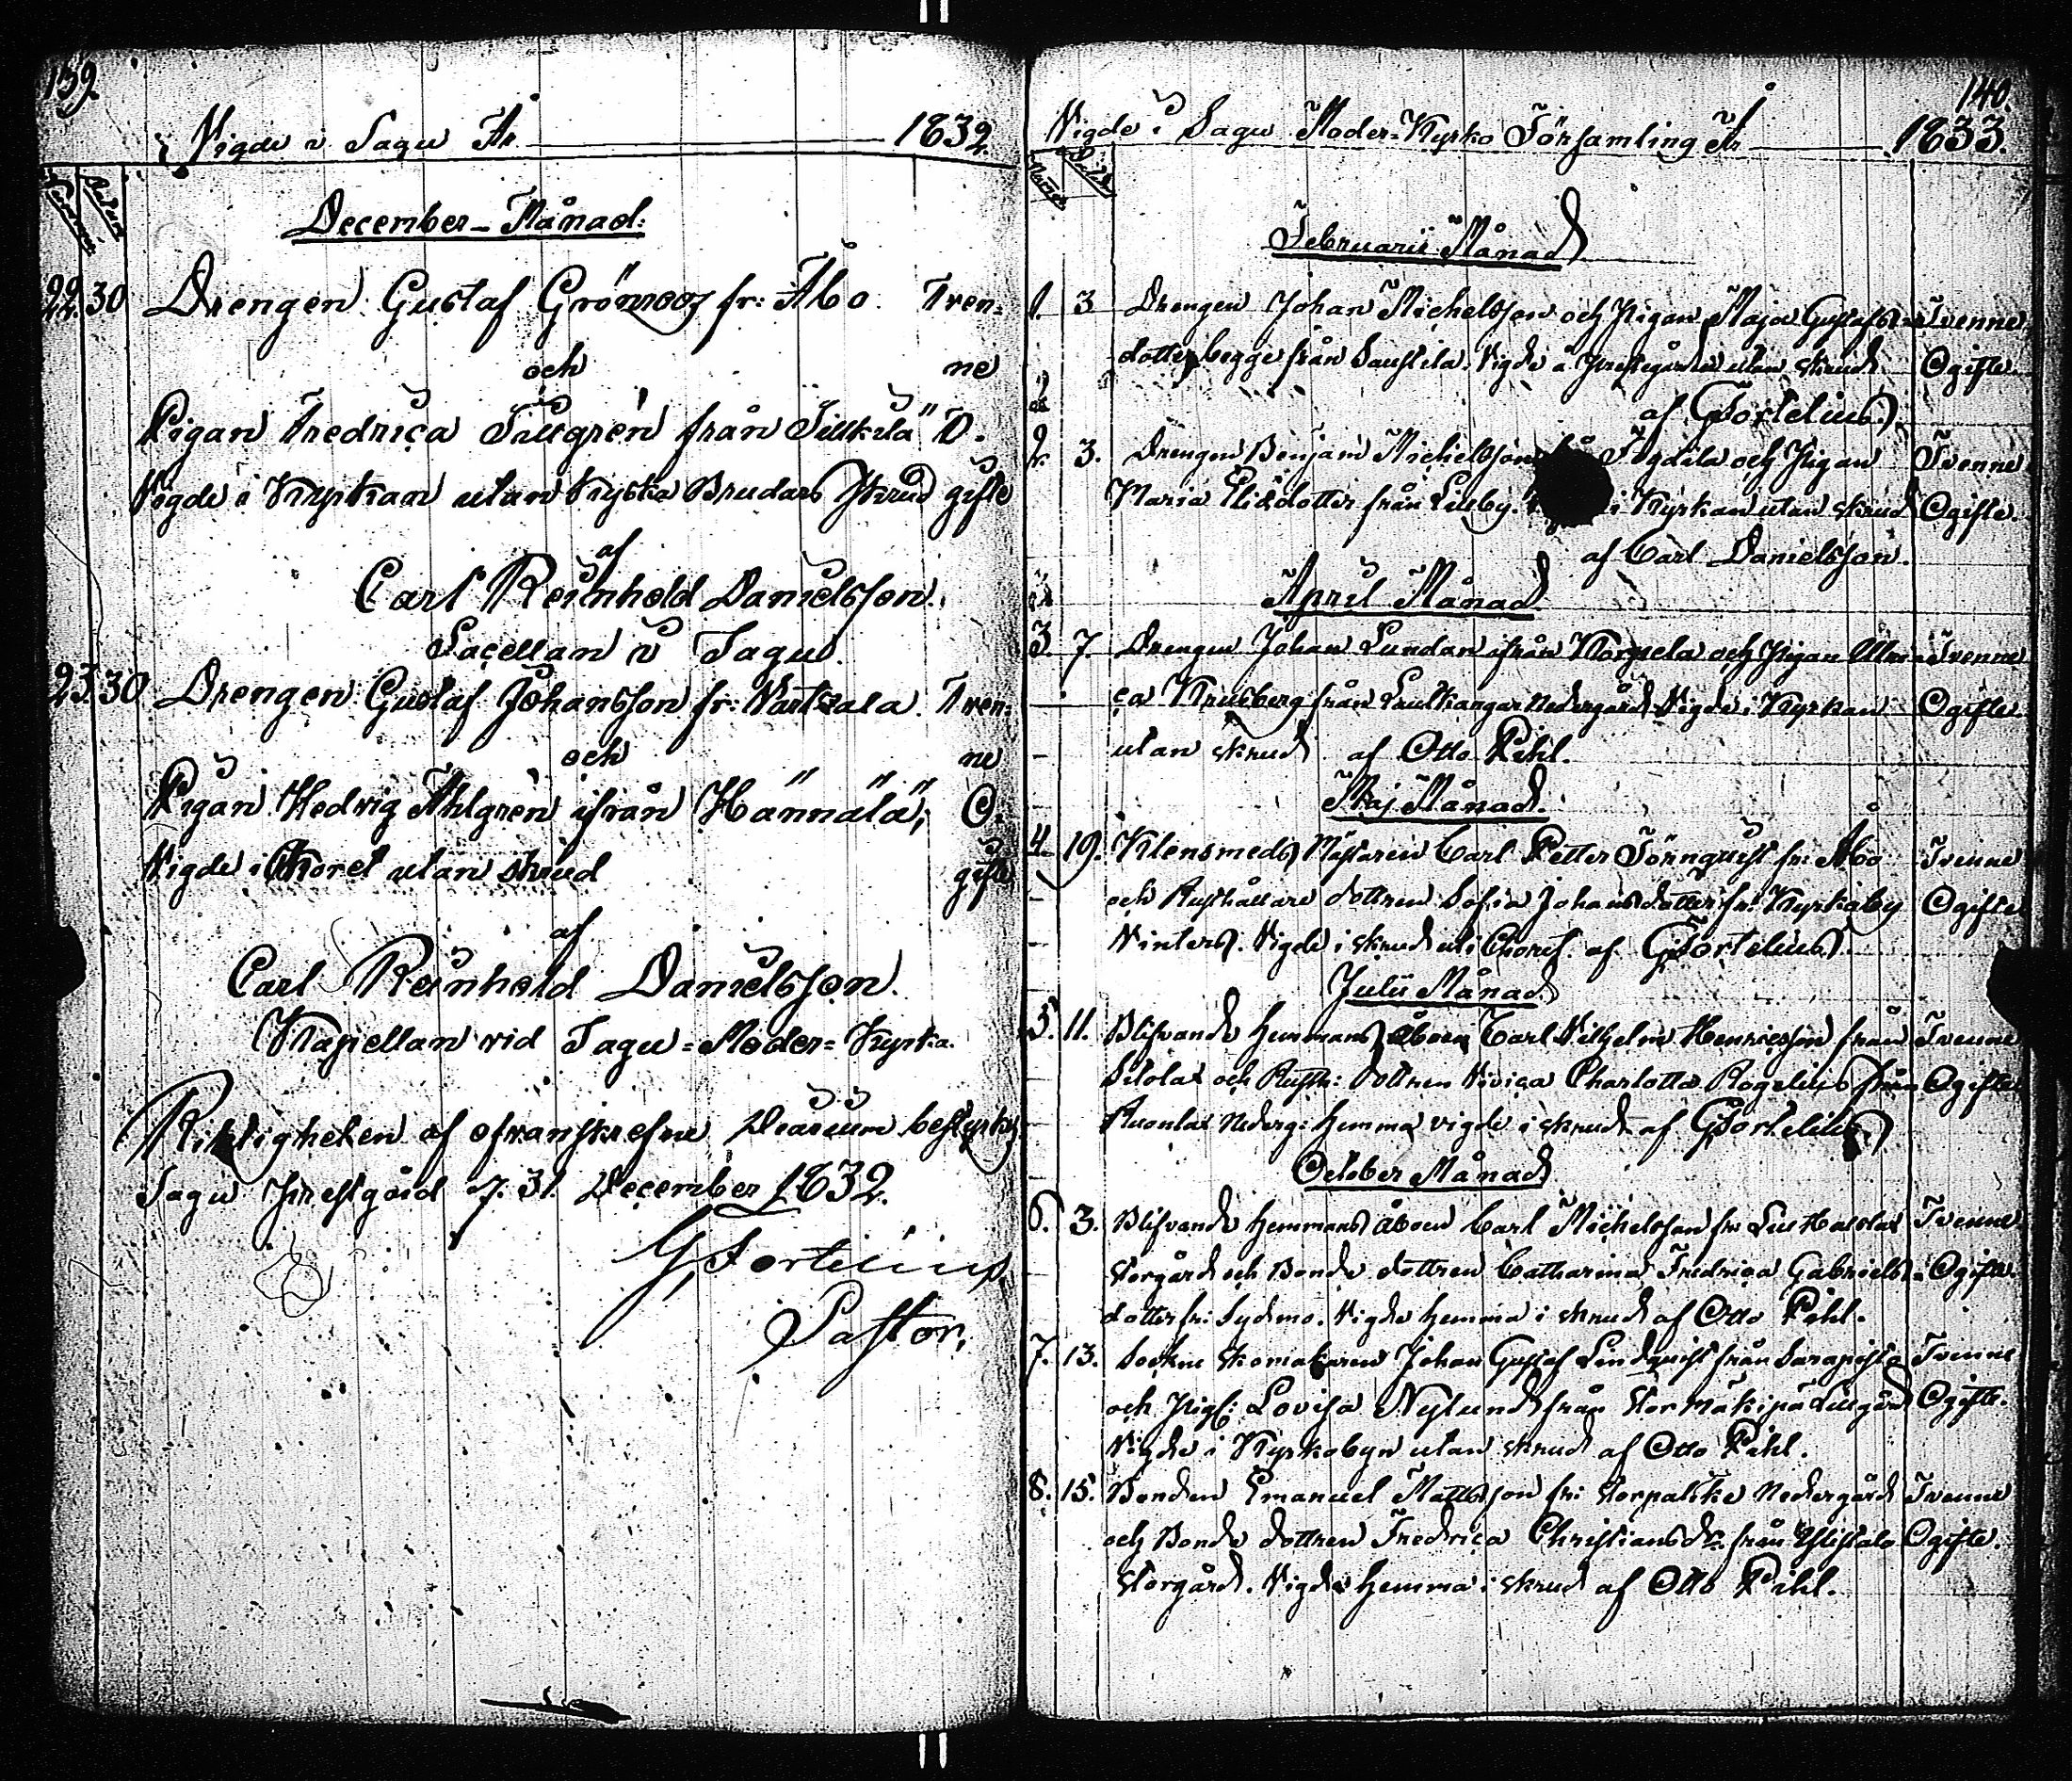 139.
Vigde i Sagu År 1832.
December-Månad:
22. 30 Drengen Gustaf Grönroos fr: Åbo Tven-
och ne
Pigan Fredrica Tallgrén från O-
Vigde i Kyrkan utan Kyska Brudars Skrud gifte
af
Carl Reinhold Danielsson.
Sacellan i Sagu.
23. 30 Drengen Gustaf Johansson fr: Vartsala Tven-
och ne
Pigan Hedvig Ahlgrén ifrån Hännälä, O-
Vigde i Choret utan skrud gifte
af
Carl Reinhold Danielsson.
Kapellan vid Sagu-Moder-Kyrka.
Riktigheten af ofvanskrefne bestyrkes
Sagu Prestgård d. 31. December 1832.
G Fortelius
Pastor.
140.
Vigde i Sagu Moder-Kyrko Församling År 1833.
Februarii Månad
1. 3 Drengen Johan Michelsson och Pigan Maja Gustafs- Tvenne
dotter begge från Saustila. Vigde å Prestegården utan skrud Ogifte
af GFortelius.
2. 3. Drengen Benjam Michelsson och Pigan Tvenne
Maria Elisdotter från Lilby. i Kyrkan utan skrud Ogifte.
af Carl Danielsson.
April Månad
3. 7. Drengen Johan Lundan ifrån Korpela och Pigan Ulri- Tvenne
ca Krusberg från Nedergård Vigde i Kyrkan Ogifte
utan skrud af Otto Pihl.
Maj Månad.
4. 19. Klensmeds Mästaren Carl Petter Törnquist fr: Åbo Tvenne
och Rusthållare dottren Sofia Johansdotter fr: Kyrkoby Ogifte
Vinters. Vigde i skrud uti Choret af GFortelius.
Julii Månad
5. 11. Blifvande Hemmans åboen Carl Vilhelm Henricsson från Tvenne
Silolax och Rusth: dottren Vivica Charlotta Rogelius från Ogifte
Ruonlax Nederg: Hemma vigde i skrud af GFortelius.
October Månad
6. 3. Blifvande Hemmans Åboen Carl Michelsson fr: Tvenne
Storgård och Bonde dottren Catharina Fredrica Gabriels- Ogifte.
dotter fr: Sydmo. Vigde Hemma i skrud af Otto Pihl.
7. 13. Sockne skomakaren Johan Gustaf Lindquist från Tvenne
och Pig: Lovisa Nylund från Stor Mäkipä Lillgård Ogifte.
Vigde i Kyrkobyn utan skrud af Otto Pihl.
8. 15. Bonden Emanuel Mattsson fr: Storpaltke Nedergård Tvenne
och Bonde dottren Fredrica Christiansdr. från Yllistalo Ogifte.
Storgård. Vigde Hemma i skrud af Otto Pihl.